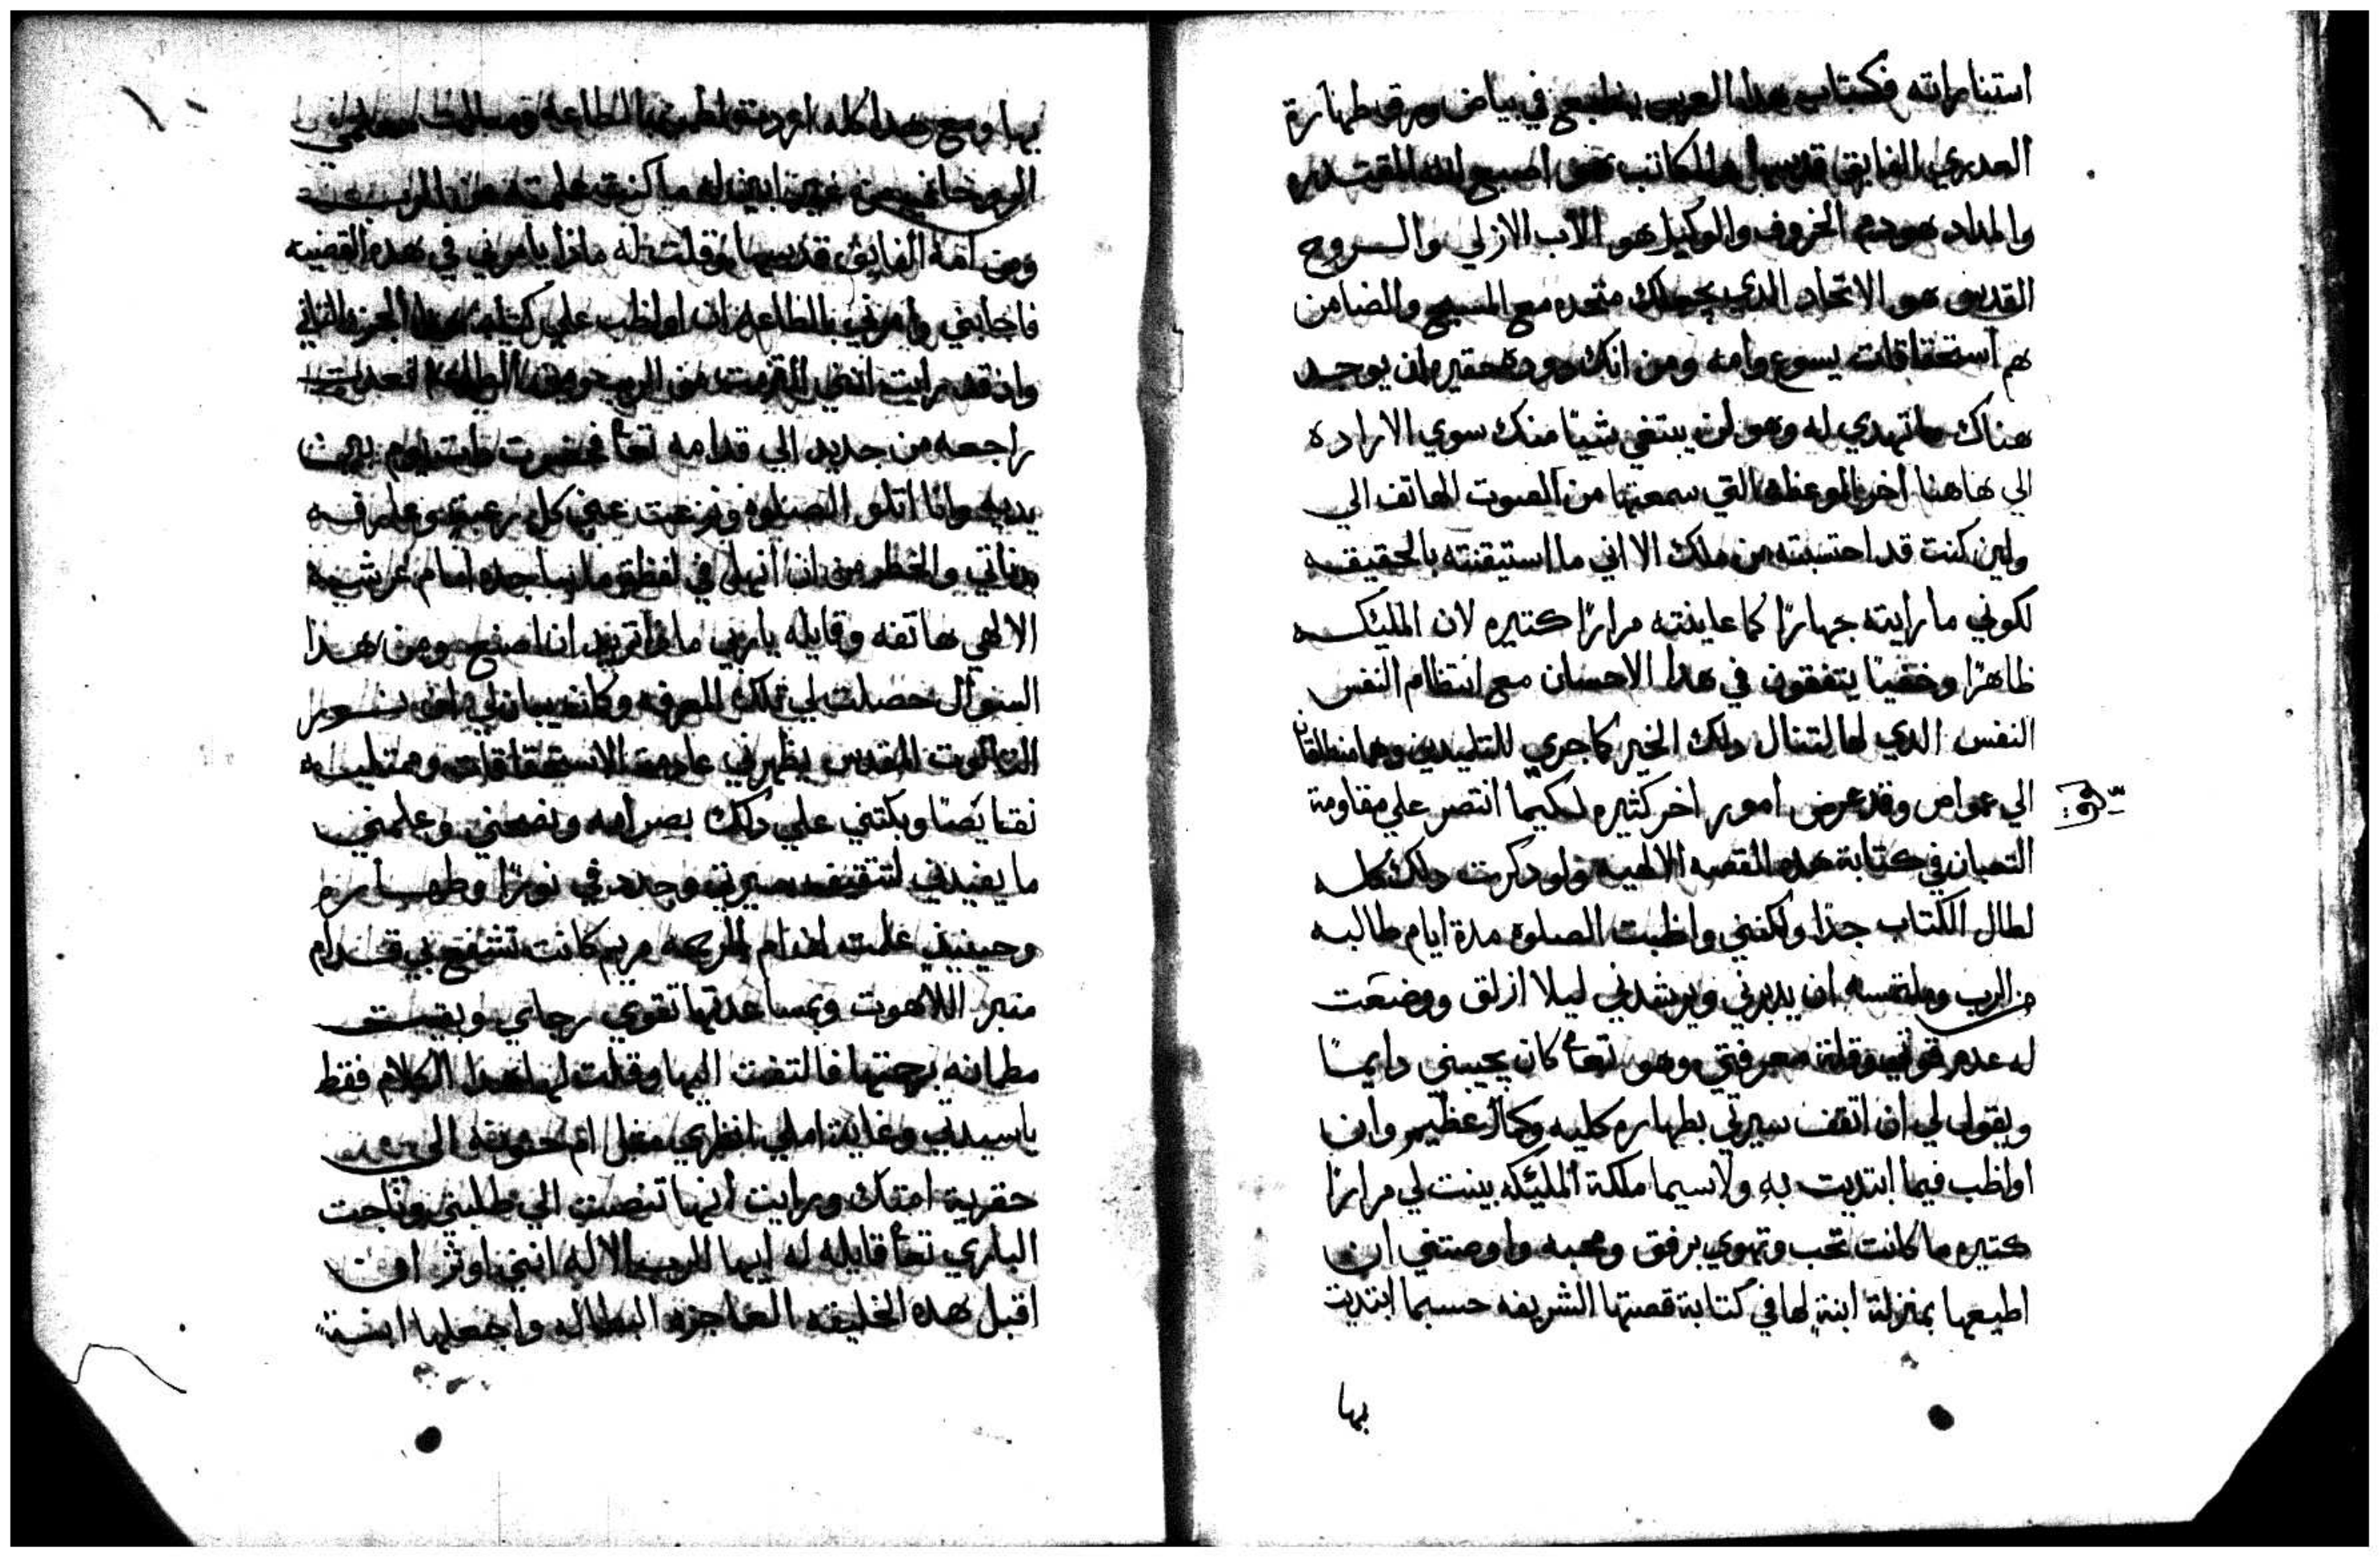 استنامراته فكتاب هدا العربس ينطبع في بياض ورق طهارة
العديري الفايق قدسها والكاتب هو اصبع الله المقتدره
والمداد هو دم الخروف والوكيل هو الاب الازلي والروح
القدس هو الاتحاد الدي يجعلك متحده مع المسيح والضامن
هم استحقاقات يسوع وامه ومن انك دوده حقيره لن يوجد
هناك ما تهدي له وهو لن يبتغي شيئا منك سوي الاراده
الي هاهنا اخر الموعظه التي سمعتها من الصوت الهاتف الي
ولين كنت قد احتسبته من ملاك الا اني ما استيقنته بالحقيقه
لكوني ما رايته جهارًا كما عاينته مرارًا كتيره لان المليكه
ظاهرًا وخفيًا يتفقون في هدا الاحسان مع انتظام النفس
النفس الدي لها لتنال دلك الخير كما جري للتلميدين وهما منطلقان
الي عمواص وقد عرض امور اخر كثيره لكيما انتصر علي مقاومة
التعبان في كتابة هده القصه الالهيه ولو دكرت دلك كله
لطال الكتاب جدًا ولكنني واظبت الصلوه مدة ايام طالبه
من الرب وملتمسه ان يدبرني ويرشدني ليلا ازلق ووضعت
له عدم قوتي وقلة معرفتي وهو تعا كان يجيبني دايمًا
ويقول لي ان اتقف سيرتي بطهاره كليه وكمال عظيم وان
اواظب فيما ابتديت به ولاسيما ملكة المليكه بينت لي مرارًا
كتيره ما كانت تحب وتهوي برفق ومحبه واوصتني ان
اطيعها بمنزلة ابنةٍ لها في كتابة قصتها الشريفه حسبما ابتديت
بها
بها ومع هدا كله اردت اظهرها الطاعه وسالت معلمي
الروحاني من غير ابين له ما كنت علمته من الرب عنه
ومن امه الفايق قدسها وقلت له مادا يامرني في هده القضيه
فاجابني وامرني بالطاعه ان اواظب علي كتابة هدا الجزو التاني
واد قد رايت انني التزمت من الرب ومن الطاعه فعدت
راجعه من جديد الي قدامه تعا فحضرت دات يوم بين
يديه وانا اتلو الصلوه ونزعت عني كل رغبة وعارفه
بدناتي والخطر من ان انهل في لفظة ما ساجده امام عرشه
الالهي هاتفه وقايله يارب مادا تريد ان اصنع ومن هدا
السوال حصلت لي تلك المعرفه وكانه يبان لي ان نور
التالوت المقدس يظهرني عادمة الاستحقاقات وممتليه
نقايصًا وبكتني علي دلك بصرامه ونصحني وعلمني
ما يفيدني لتتقيف سيرتي وجدد في نورًا وطهاره
وحينيد علمت ان ام الرحمه مريم كانت تشفع بي قدام
منبر اللاهوت وبمساعدتها تقوي رجاي وبقيت
مطمانه برحمتها فالتفت اليها وقلت لها هدا الكلام فقط
ياسيدتي وغاية املي انظري مثل ام حنونه الي
حقرية امتك ورايت انها تنصت الي طلبتي وناجت
الباري تعا قايله له ايها الرب الاله انني اوثر ان
اقبل هده الخليقه العاجزه البطاله واجعلها ابنة